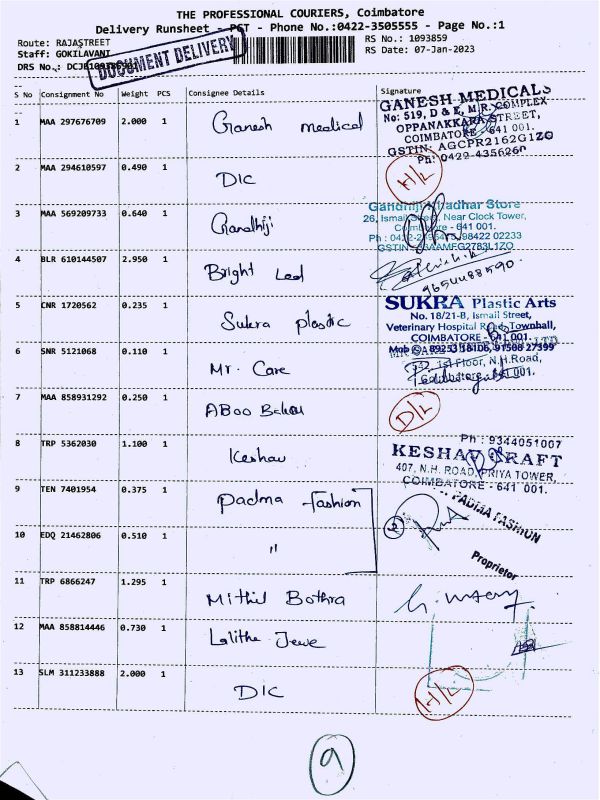 THE PROFESSIONAL COURIERS, Coimbatore
Delivery Runsheet - PST - Phone No.:0422-3505555 - Page No.:1
Route: RAJASTREET
RS No.: 1093859
Staff: GOKILAVANI
RS Date: 07-Jan-2023
DRS No.:
DOCUMENT DELIVERY
S No Consignment No Weight PCS Consignee Details Signature
1 MAA 297676709 2.000 1 Ganesh medical
GANESH MEDICALS
No: 519, D & E, M.R. COMPLEX
OPPANAKKARA STREET,
COIMBATORE - 641 001.
GSTIN: AGCPR2162G1ZO
Ph: 0422-435626
2 MAA 294610597 0.490 1 DIC
3 MAA 569209733 0.640 1 Gandhiji
Gandhiji Khadhar Store
26, Ismail Street, Near Clock Tower,
Coimbatore - 641 001.
98422 02233
4 BLR 610144507 2.950 1 Bright Led
9654488590
5 CNR 1720562 0.235 1 Sukra plastic
SUKRA Plastic Arts
No. 18/21-B, Ismail Street,
Veterinary Hospital Road, Townhall,
COIMBATORE - 641 001.
6 SNR 5121068 0.110 1 Mr. Care
1st Floor, N.H.Road,
Coimbatore - 641 001.
7 MAA 858931292 0.250 1 ABoo
D/L
8 TRP 5362030 1.100 1 Keshav
Ph : 9344051007
KESHAV CRAFT
407, N.H. ROAD, PRIYA TOWER,
COIMBATORE - 641 001.
9 TEN 7401954 0.375 1 Padma fashion
PADMA FASHION
Proprietor
10 EDQ 21462806 0.510 1 "
11 TRP 6866247 1.295 1 Mithil Bothra
12 MAA 858814446 0.730 1 Lalitha Jewe
13 SLM 311233888 2.000 1 DIC
9